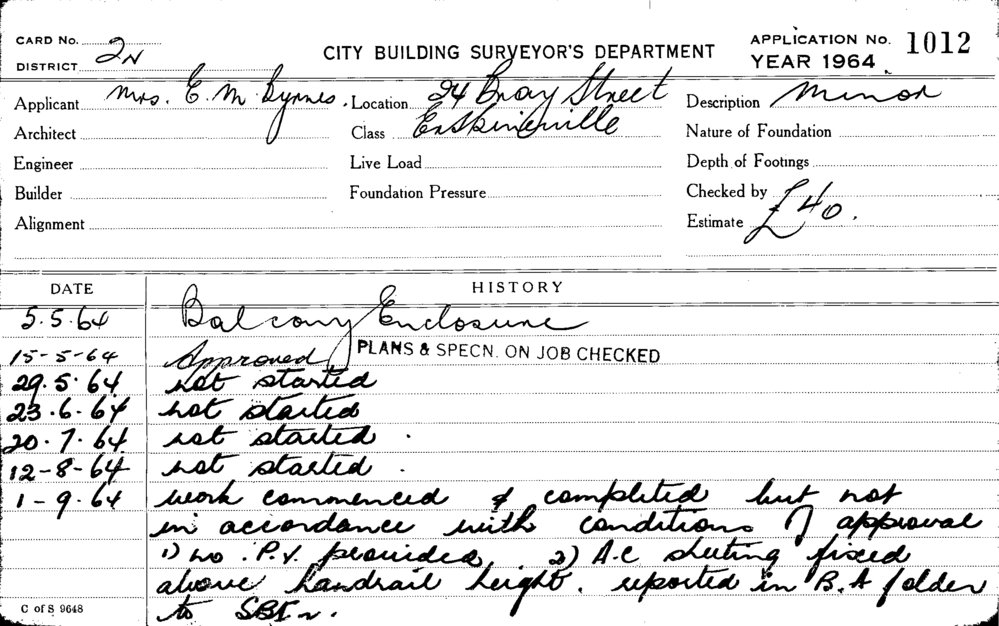 CARD No. 2N
DISTRICT
CITY BUILDING SURVEYOR'S DEPARTMENT
APPLICATION No. 1012
YEAR 1964
Applicant Mrs. E. M Byrnes. Location 24 Bray Street Description Minor
Architect Class Erskineville Nature of Foundation
Engineer Live Load Depth of Footings
Builder Foundation Pressure Checked by
Alignment Estimate £40.
DATE HISTORY
5.5.64 Balcony Enclosure
15-5-64 Approved PLANS & SPECN. ON JOB CHECKED
29.5.64 not started
23.6.64 not started
20.7.64 not started.
12-8-64 not started.
1-9.64 work commenced & completed but not
in accordance with conditions of approval
1) no. P.V. provided 2) A.C sheeting fixed
above handrail height. reported in B.A folder
to
C of S 9648